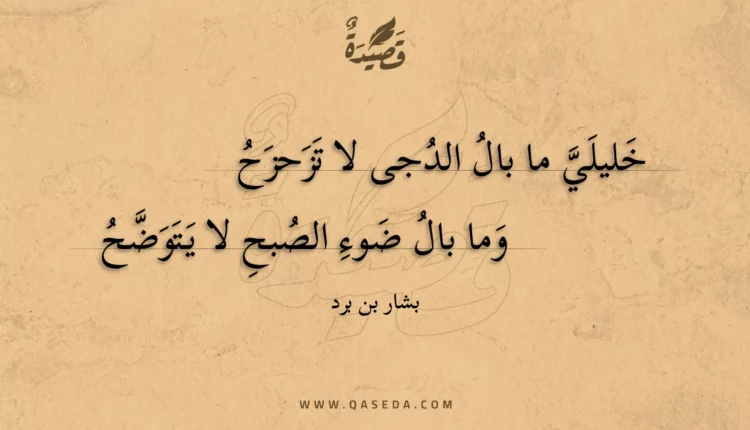 قَصِيْدَةٌ
خَليلَيَّ ما بالُ الدُجى لا تَزَحزَحُ
وَما بالُ ضَوءِ الصُبحِ لا يَتَوَضَّحُ
بشار بن برد
WWW.QASEDA.COM